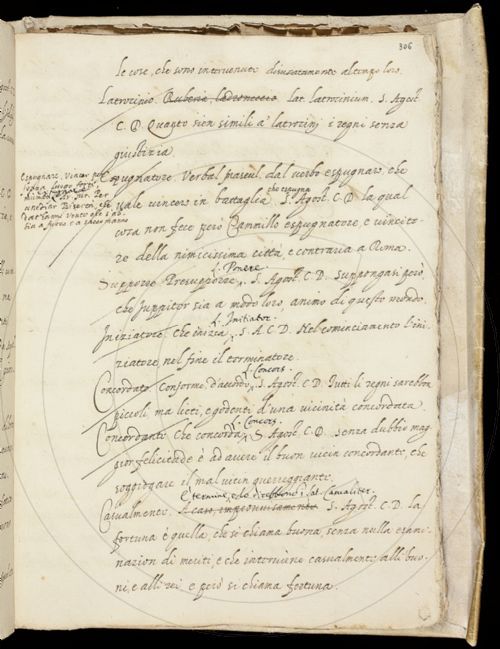 306
le cose, che sono intervenute divisatamente al tempo loro.
Latrocinio. Ruberia, ladroneccio Lat. latrocinium. S. Agost.
C. D. Quanto sien simili a' latrocinj i regni senza
giustizia.
Espugnatore. Verbal mascul. dal verbo espugnare, che
che espugna
vale vincere in battaglia. S. Agost. C. D. la qual
cosa non fece però Cammillo espugnatore, e vincito-
re della nimicissima città, e contraria a Roma.
L. Ponere
Supporre. Presupporre, S. Agost. C. D. Suppongasi però,
che Juppiter sia a modo loro, animo di questo mondo.
L. Initiator.
Iniziatore. Che inizia, S. A. C. D. Nel cominciamento l'ini-
ziatore, nel fine il terminatore.
L. Concors.
Concordato. Conforme, d'accordo, S. Agost. C. D. Tutti li regni sarebbon
piccoli, ma lieti, e godenti d'una vicinità concordata.
L. Concors.
Concordante. Che concorda, S. Agost. C. D. Senza dubbio mag-
gior felicitade è ad avere il buon vicin concordante, che
soggiogare il mal vicin guerreggiante.
Lat. Casualiter.
Casualmente. A caso, improvvisamente S. Agost. C. D. la
fortuna è quella, che si chiama buona senza nulla esami-
nazion di meriti, e che interviene casualmente alli buo-
ni, e alli rei e però si chiama fortuna.
Espugnare, Vincer per